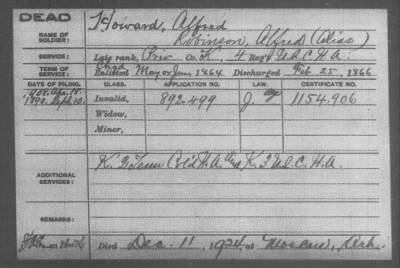 DEAD
NAME OF SOLDIER:
Howard, Alfred
Robinson, Alfred (Alias)
SERVICE:
Late rank, Priv Co. F, 4 Reg't U.S.C.H.A.
TERM OF SERVICE:
Enlisted May or June, 1864. Discharged Feb 25, 1866
DATE OF FILING. CLASS. APPLICATION NO. LAW. CERTIFICATE NO.
1890. Sept. 10. Invalid, 892499 J 1154.906
Widow,
Minor,
ADDITIONAL SERVICES:
K. 2 Tenn Col'd H.A. K. 3 U.S.C.H.A.
REMARKS:
Died Dec. 11, 1924 at Moscow, Ark.